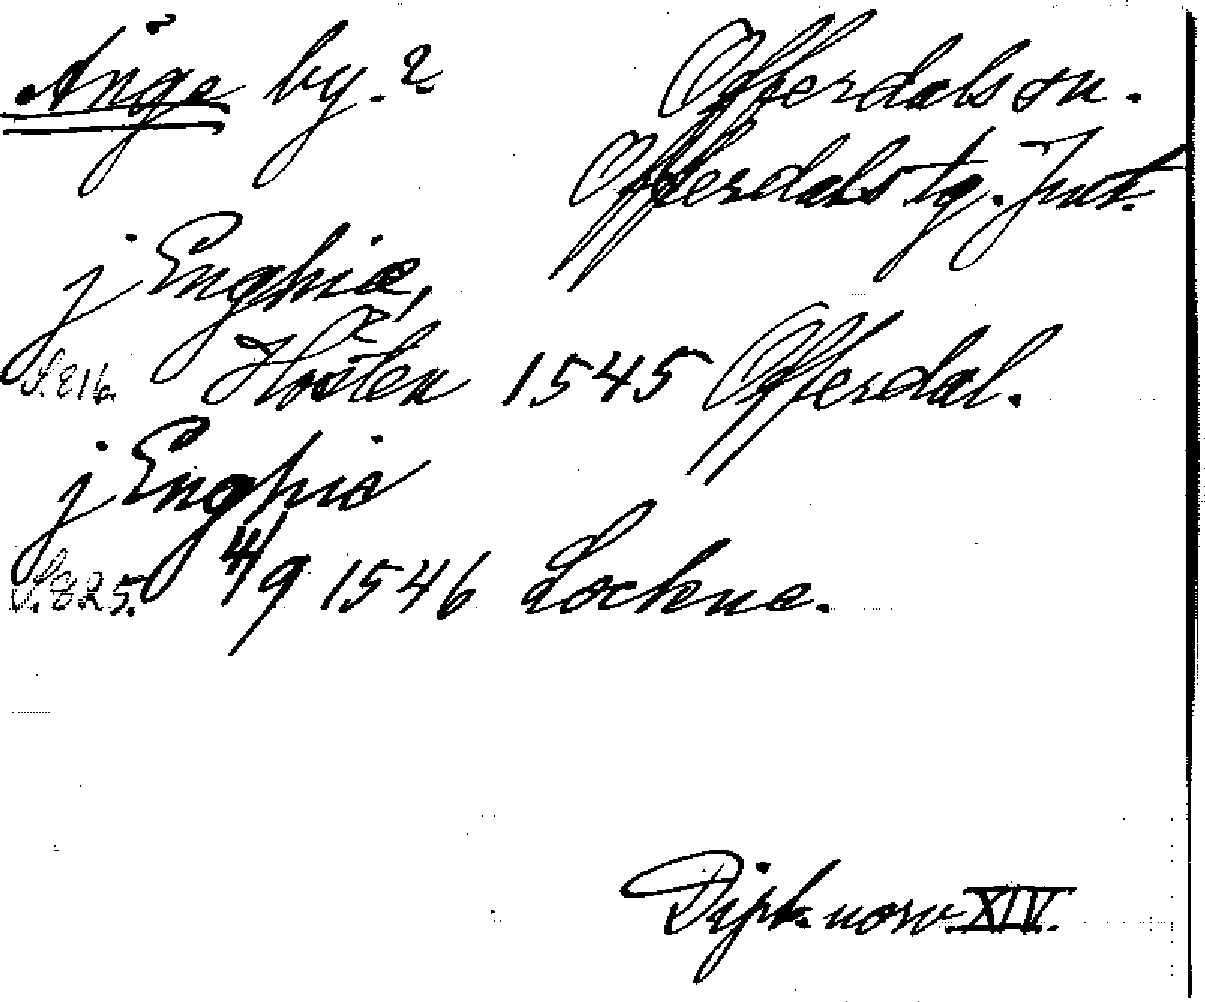 Ånge by.? Offerdals sn.
Offerdals tg. Jmt.
j Enghiæ,
S. 816. Hösten 1545 Offerdal.
j Enghie
S. 825. 4/9 1546 Lockne.
Dipl. norv. XIV.